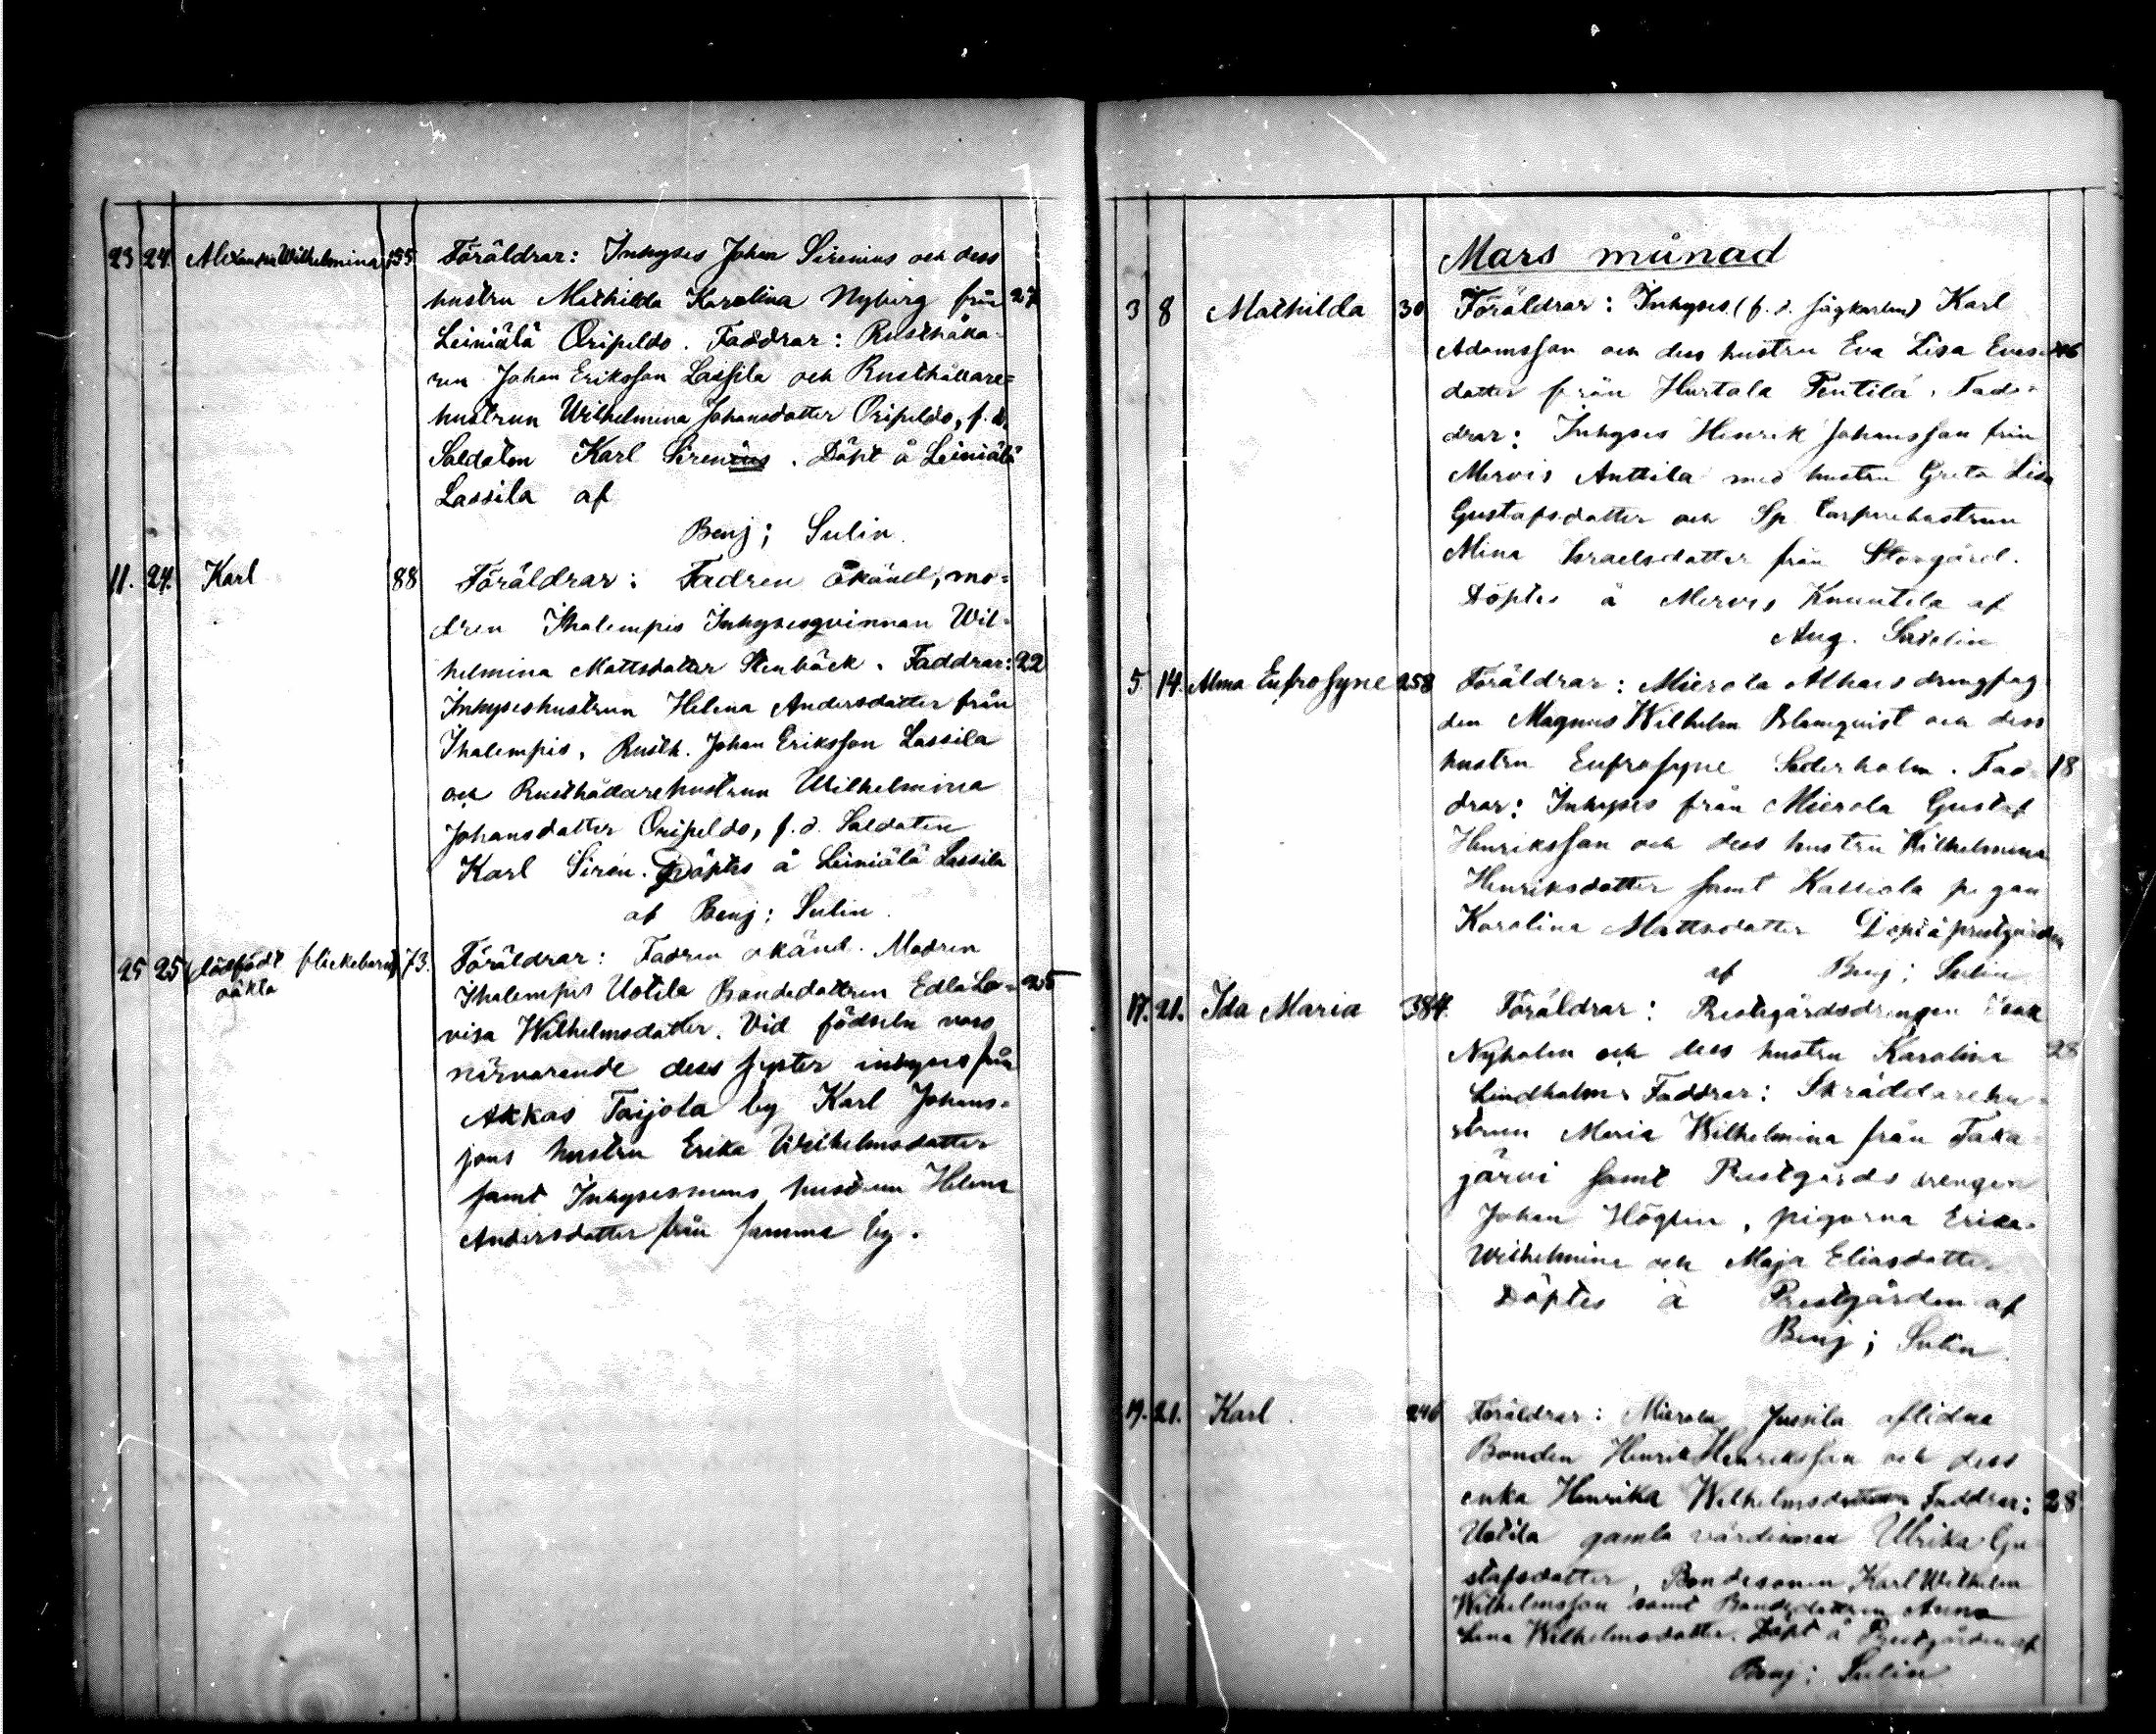 23 24. Alexandra Wilhelmina 155 Föräldrar: Inhyses Johan Sirenius och dess
hustru Mathilda Karolina Nyberg från 27
Leiniälä Oripeldo. Faddrar: Rusthålla-
ren Johan Eriksson Lassila och Rusthållare-
hustrun Wilhelmina Johansdotter Oripeldo, f. d.
Soldaten Karl Sirenius. Döpt å Leiniälä
Lassila af
Benj; Sulin.
11. 24. Karl 88 Föräldrar: Fadren okänd, mo-
dren Ihalempis Inhysesqvinnan Wil-
helmina Mattsdotter Stenbäck. Faddrar: 22
Inhyseshustrun Helena Andersdotter från
Ihalempis, Rusth. Johan Eriksson Lassila
och Rusthållarehustrun Wilhelmina
Johansdotter Oripeldo, f. d. Soldaten
Karl Sirén. Döptes å Leiniälä Lassila
af Benj; Sulin.
25 25 (dödfödt flickebarn) 73. Föräldrar: Fadren okänd. Modren
oäkta
Ihalempis Uotila Bondedottren Edla Lo- 25
visa Wilhelmsdotter. Vid födseln voro
närvarande dess syster inhyses från
Akkas Taijola by Karl Johans-
sons hustru Erika Wilhelmsdotter
samt Inhysesmans hustrun Helena
Andersdotter från samma by.
Mars månad
3 8 Mathilda 30 Föräldrar: Inhyses (f. d. Sågkarlen) Karl
Adamsson och dess hustru Eva Lisa 46
dotter från Hurtala Pentilä. Fad-
drar: Inhyses Henrik Johansson från
Mervis Anttila med hustru Greta Lisa
Gustafsdotter och Sp. Torparehustrun
Mina Israelsdotter från Storgård.
Döptes å Mervis Knuutila af
Aug.
5 14. Alma Eufrosyne 258 Föräldrar: Mierola Alhais drengfog-
den Magnus Wilhelm Blomqvist och dess
hustru Eufrosyne Söderholm. Fad- 18
drar: Inhyses från Mierola Gustaf
Henriksson och dess hustru Wilhelmina
Henriksdotter samt Kassiala pigan
Karolina Mattsdotter Döpt å prestgården
af Benj; Sulin
17. 21. Ida Maria 384. Föräldrar: Prestegårdsdrengen Isak
Nyholm och dess hustru Karolina 28
Lindholm. Faddrar: Skräddarehu-
strun Maria Wilhelmina från Taka-
järvi samt Prestgårds drengen
Johan Höglin, pigorna Erika
Wilhelmina och Maja Eliasdotter
Döptes å Prestgården af
Benj; Sulin.
19. 21. Karl. 246 Föräldrar: Mierola Jussila aflidna
Bonden Henrik Henriksson och dess
enka Henrika Wilhelmsdotter Faddrar: 28
Uotila gamla värdinnan Ulrika Gu-
stafsdotter, Bondesonen Karl Wilhelm
Wilhelmsson samt Bondedottren Anna
Lena Wilhelmsdotter. Döpt å Prestgården af
Benj; Sulin